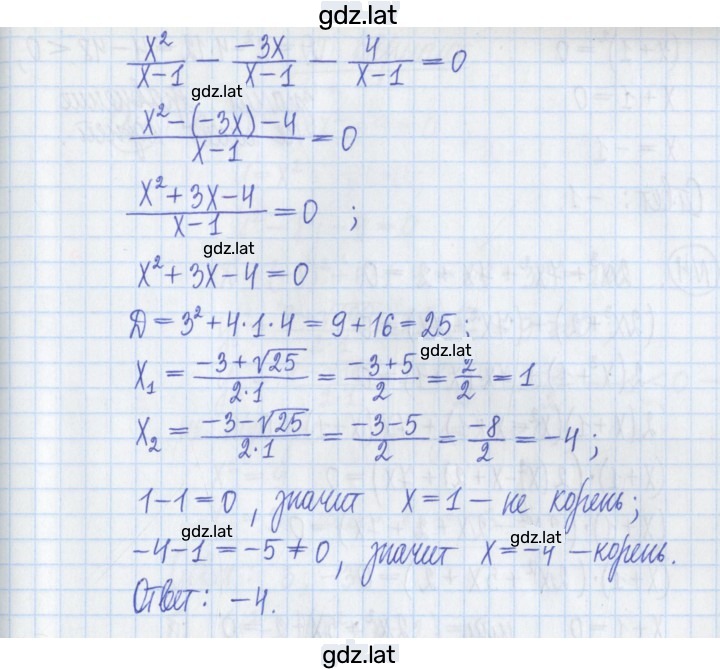 gdz.lat
x²/(x-1) - (-3x)/(x-1) - 4/(x-1) = 0
gdz.lat
(x²-(-3x)-4)/(x-1) = 0
(x²+3x-4)/(x-1) = 0 ;
gdz.lat
x²+3x-4=0
D = 3²+4·1·4 = 9+16 = 25 :
gdz.lat
x₁ = (-3+√25)/(2·1) = (-3+5)/2 = 2/2 = 1
x₂ = (-3-√25)/(2·1) = (-3-5)/2 = -8/2 = -4 ;
1-1=0, значит x=1 – не корень;
gdz.lat
gdz.lat
-4-1=-5≠0, значит x=-4 – корень.
Ответ: -4.
gdz.lat